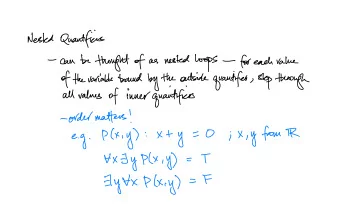 Nested Quantifiers
- can be thought of as nested loops – for each value
of the variable bound by the outside quantifier, step through
all values of inner quantifiers
- order matters!
e.g. P(x,y): x + y = 0 ; x,y from ℝ
∀x∃y P(x,y) = T
∃y∀x P(x,y) = F